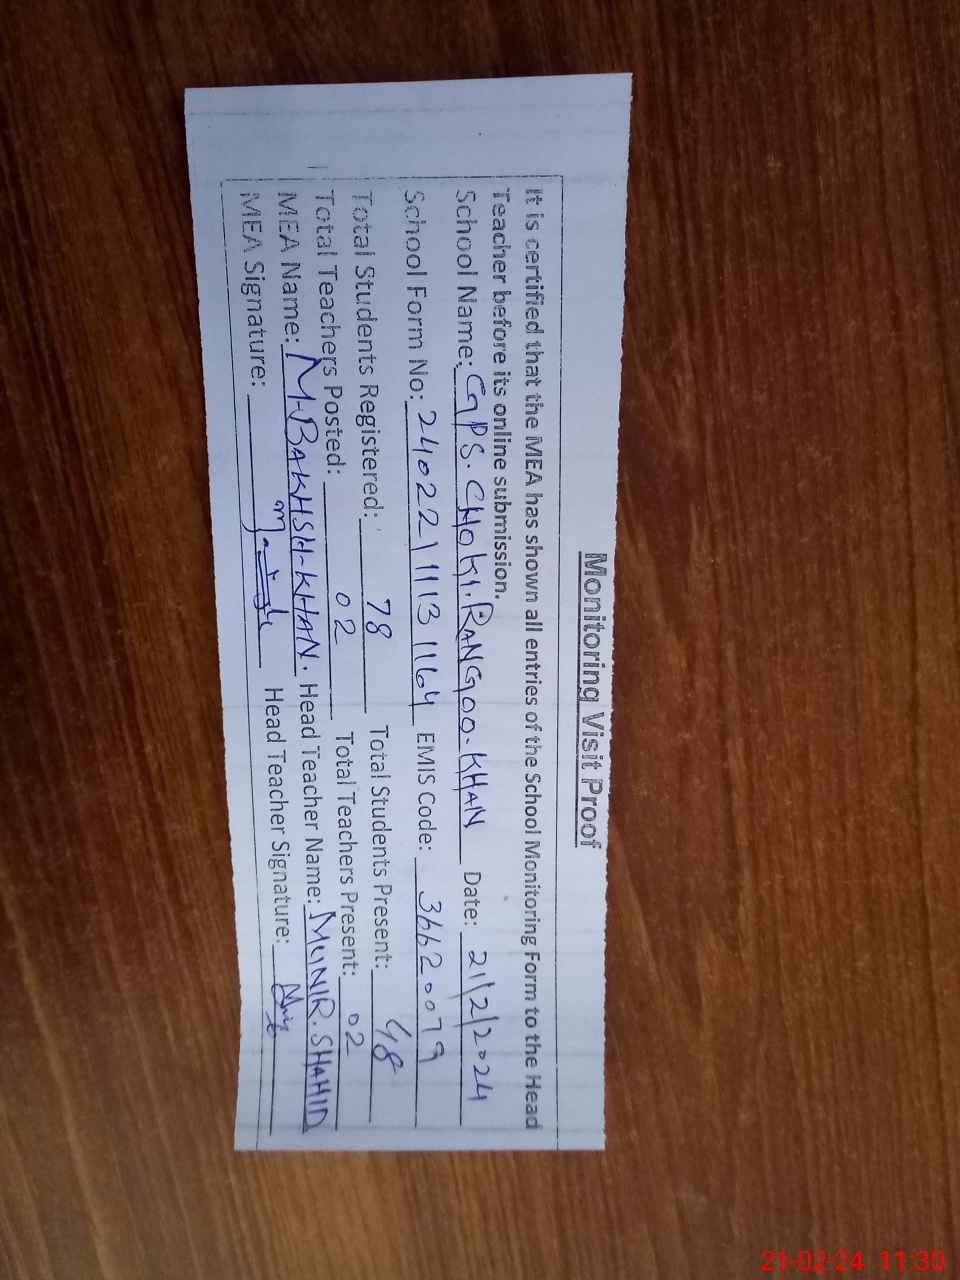 Monitoring Visit Proof
It is certified that the MEA has shown all entries of the School Monitoring Form to the Head
Teacher before its online submission.
School Name: GPS. CHOKI. RANGOO. KHAN Date: 21/2/2024
School Form No: 24022111131164 EMIS Code: 36620079
Total Students Registered: 78 Total Students Present: 48
Total Teachers Posted: 02 Total Teachers Present: 02
MEA Name: M. BAKHSH-KHAN. Head Teacher Name: MUNIR. SHAHID
MEA Signature: Head Teacher Signature:
21-02-24 11:30